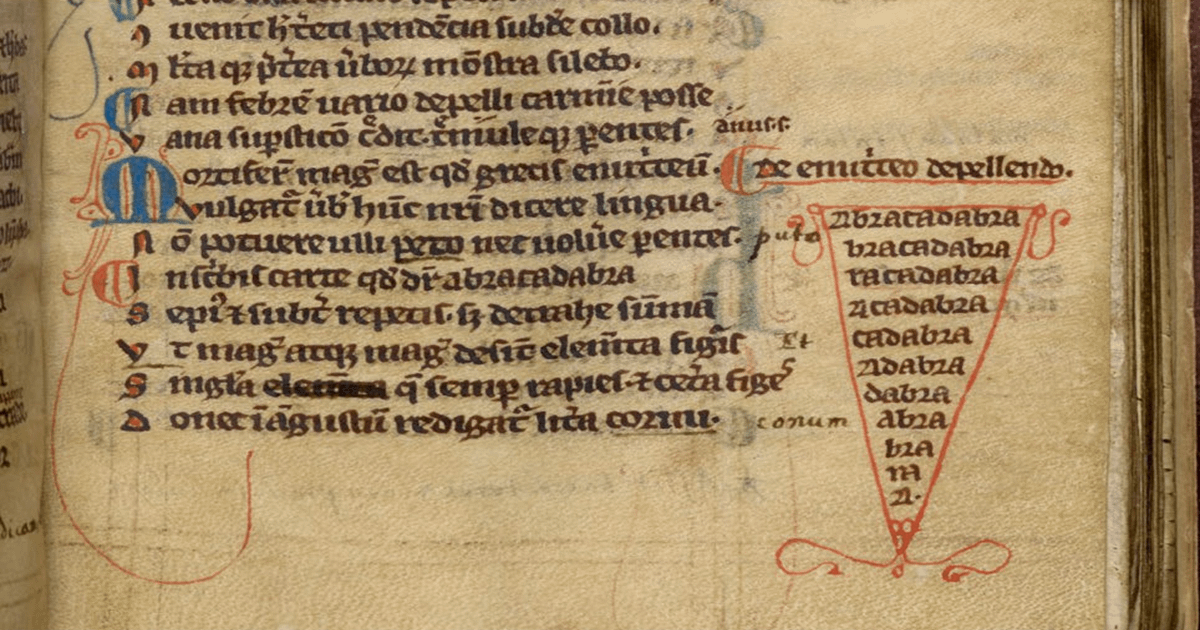 uenit h̄ t̄eti pendēcia subdē collo.
M lt̄a qꝫ p̄t̄ea ūboꝝ mōstra silebo.
N am febrē uario depelli carmīe posse
V ana suꝑsticō c̄dit
De emit̄teo depellendo.
M ortiferꝰ magꝭ est qd̄ grecis emit̄teū.
V ulgat᷑ ūb̓ hūc nr̄i dicere lingua.
N ō potuere ulli peto nec uolūe parentes. puto
I nsc̄bis carte qd̓ dr̄ abracadabra
S epiꝰ ⁊ subt̓ repetis. sꝫ detrahe sūmā
V t magꝭ atqꝫ magꝭ desīt elem̄ta figꝭis Et
S ingl̓a q̄ semꝑ rapies. ⁊ cet̓a fige
D onec ī āgustū redigat᷑ lit̄a cornu. conum
Abracadabra
bracadabra
racadabra
Acadabra
cadabra
Adabra
dabra
Abra
bra
ra
A.